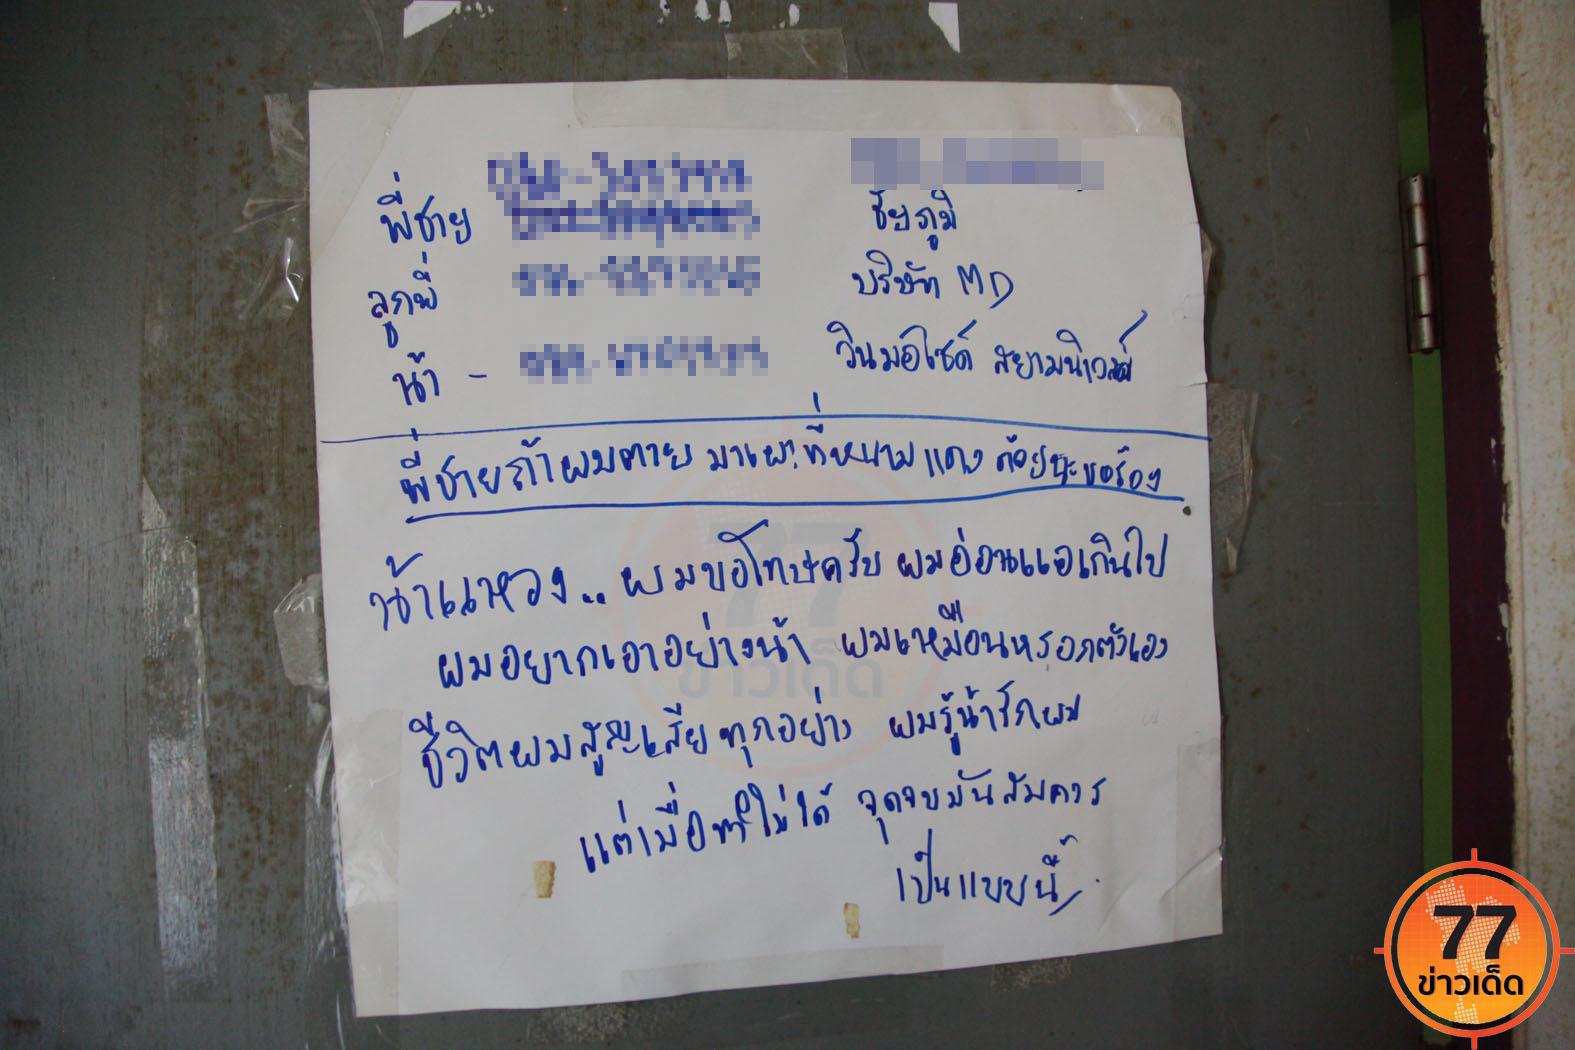 พี่ชาย
ชัยภูมิ
ลูกพี่
บริษัท MD
น้า -
วินมอไซด์ สยามนิเวศน์
พี่ชายถ้าผมตาย มาเผาที่หนามแดง ด้วยนะขอร้อง
น้าแหวง.. ผมขอโทษครับ ผมอ่อนแอเกินไป
ผมอยากเอาอย่างน้า ผมเหมือนหรอกตัวเอง
ชีวิตผมสูญเสียทุกอย่าง ผมรู้น้ารักผม
แต่เมื่อทำไม่ได้ จุดจบมันสมควร
เป็นแบบนี้
77
ข่าวเด็ด
77
ข่าวเด็ด